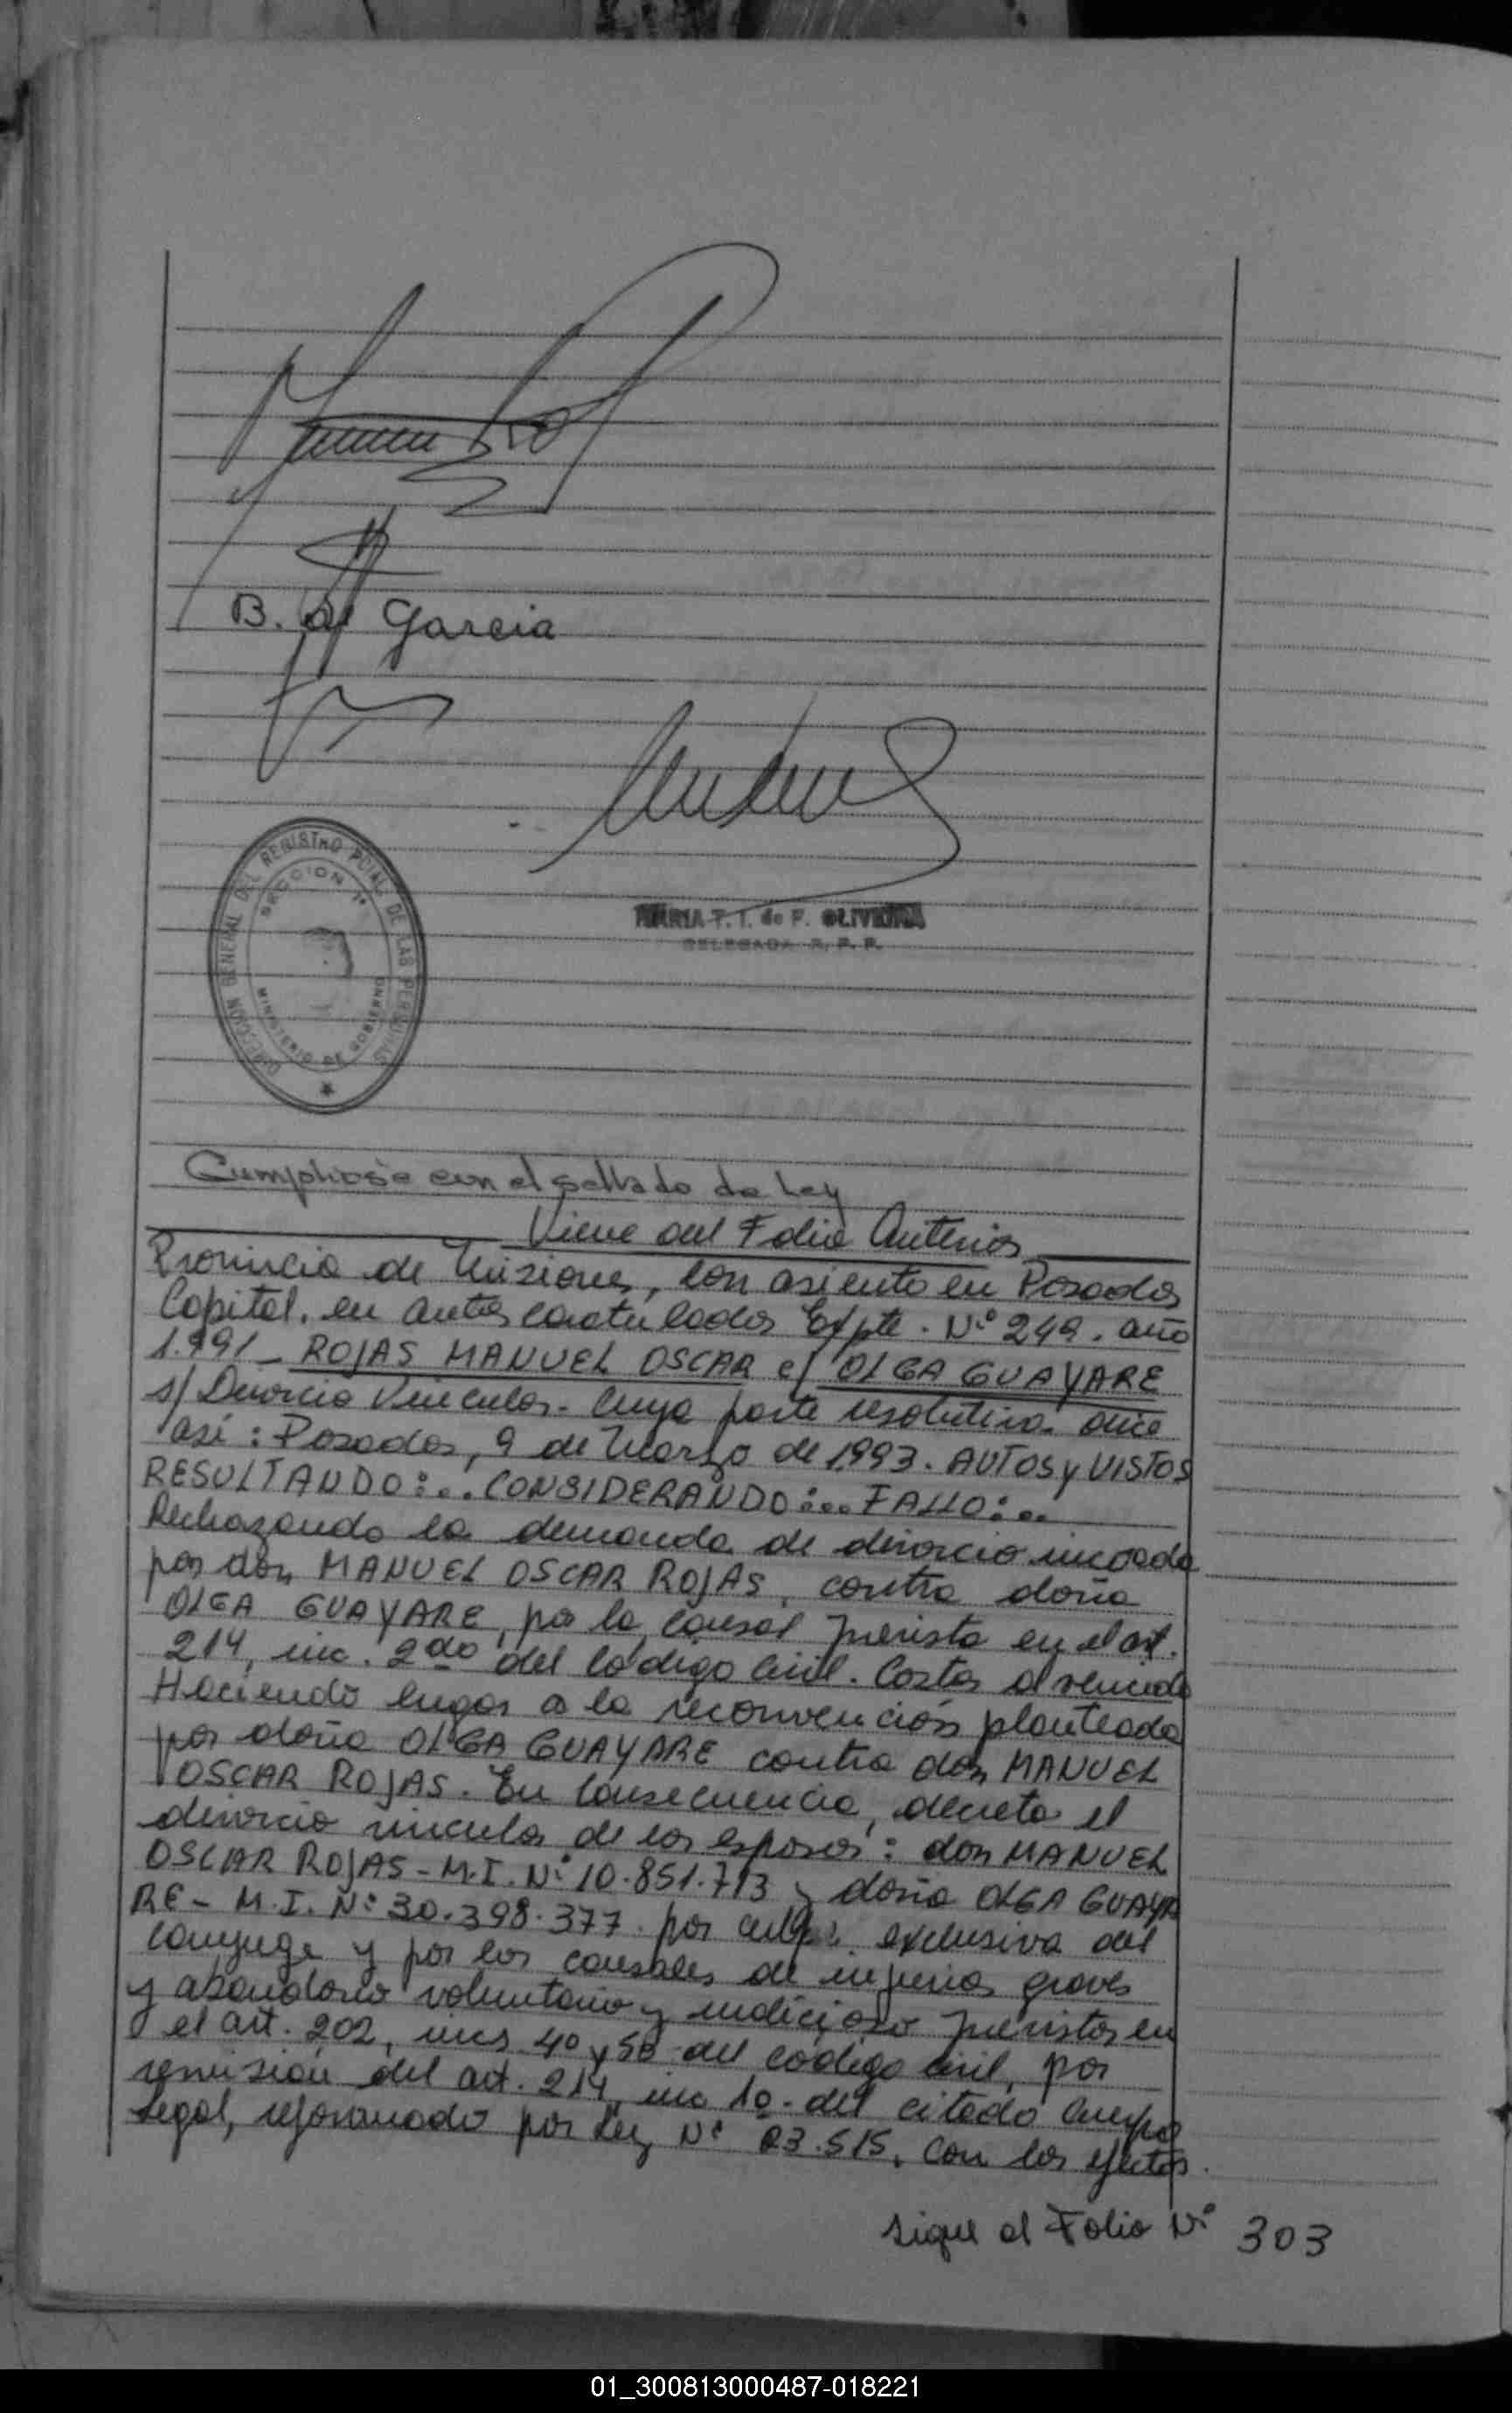 B. de Garcia
DIRECCION GENERAL DEL REGISTRO PCIAL. DE LAS PERSONAS
SECCION 1ª
MINISTERIO DE GOBIERNO
MARIA T. I. de F. OLIVEIRA
DELEGADA R. P. P.
Cumpliose con el sellado de Ley
Viene del Folio Anterior
Provincia de Misiones, con asiento en Posadas
Capital, en autos caratulados Expte. Nº 249. año
1.991 - ROJAS MANUEL OSCAR c/ OLGA GUAYARE
s/ Divorcio Vincular. Cuya parte resolutiva dice
así: Posadas, 9 de Marzo de 1993. AUTOS y VISTOS
RESULTANDO:... CONSIDERANDO:... FALLO:...
Rechazando la demanda de divorcio incoada
por don MANUEL OSCAR ROJAS, contra doña
OLGA GUAYARE, por la causal prevista en el art.
214, inc. 2do del Código Civil. Costas al vencido
Haciendo lugar a la reconvención planteada
por doña OLGA GUAYARE contra don MANUEL
OSCAR ROJAS. En Consecuencia, decreto el
divorcio vincular de los esposos: don MANUEL
OSCAR ROJAS - M.I. Nº 10.851.713 y doña OLGA GUAYA
RE - M.I. Nº 30.398.377. por culpa exclusiva del
conyuge y por las causales de injurias graves
y abandono voluntario y malicioso previstas en
el art. 202, incs 4º y 5º del código civil, por
remisión del art. 214 inc 1º. del citado Cuerpo
Legal, reformado por Ley Nº 23.515, Con los efectos.
Sigue al Folio Nº 303
01_300813000487-018221